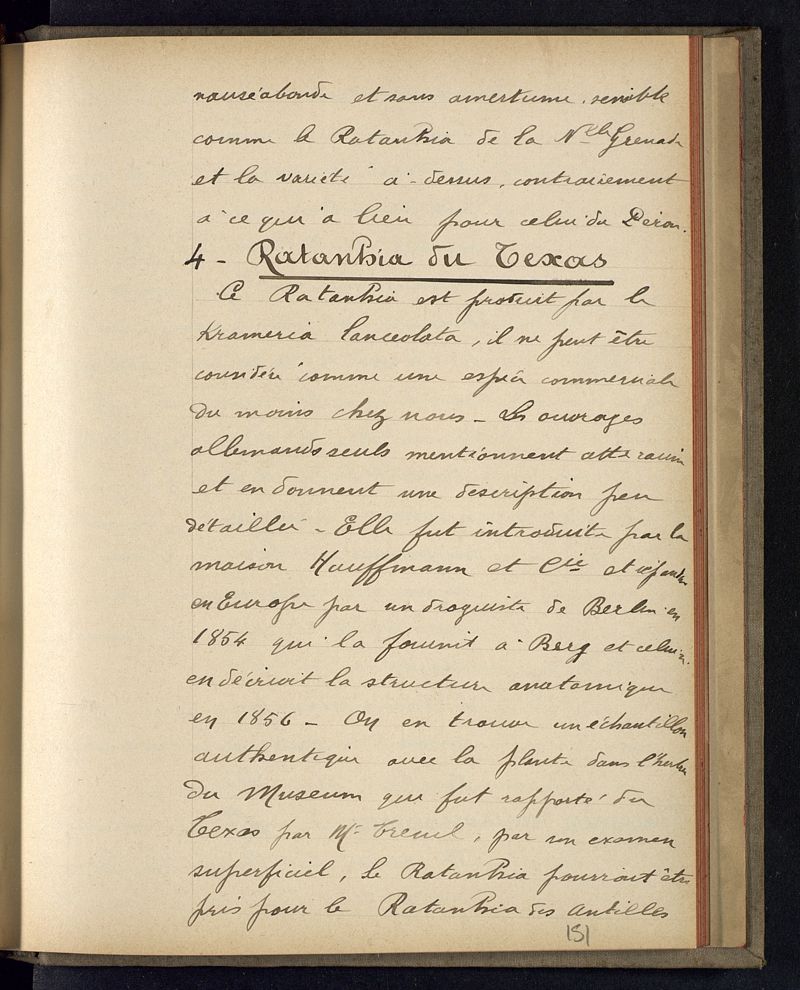 nauséabonde et sans amertume sensible
comme le Ratanhia de la N^elle Grenade
et la variété ci-dessus, contrairement
à ce qui a lieu pour celui du Pérou.
4 - Ratanhia du Texas
Ce Ratanhia est produit par le
Krameria lanceolata, il ne peut être
considéré comme une espèce commerciale
du moins chez nous - Les ouvrages
allemands seuls mentionnent cette racine
et en donnent une description peu
détaillée - Elle fut introduite par la
maison Hauffmann et Cie et répandue
en Europe par un droguiste de Berlin en
1854 qui la fournit à Berg et celui-ci
en décrivit la structure anatomique
en 1856 - On en trouve un échantillon
authentique avec la plante dans l'herbier
du Museum qui fut rapporté du
Texas par Mr Trecul, par un examen
superficiel, le Ratanhia pourrait être
pris pour le Ratanhia des Antilles
151